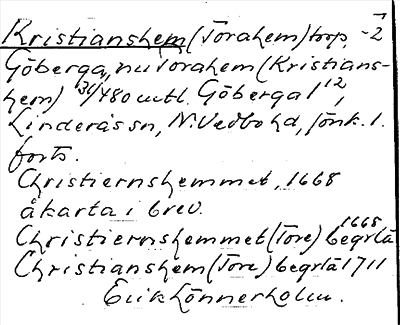 Kristianshem (Torahem) torp, -2
Göberga, nu Torahem (Kristians-
hem) 36/480 mtl. Göberga 1 12,
Linderås sn, N. Vedbo hd, Jönk. l.
forts.
Christiernshemmet, 1668
åkarta i brev.
Christiernshemmet (Tore) 1668 begrlä
Christianshem (Tore) begrlä 1711
Erik Lönnerholm.